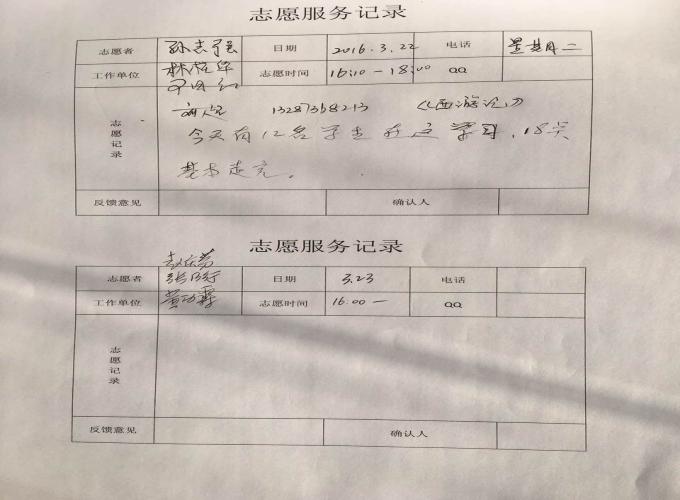 志愿服务记录
志愿者 孙志强 日期 2016.3.22 电话 星期二
工作单位 林 华 志愿时间 16:10-18:00 QQ
志愿记录 13287368213 《西游记》
今天有12名学生在这学习，18点
基本走完。
反馈意见 确认人
志愿服务记录
志愿者 日期 3.23 电话
工作单位 志愿时间 16:00- QQ
志愿记录
反馈意见 确认人